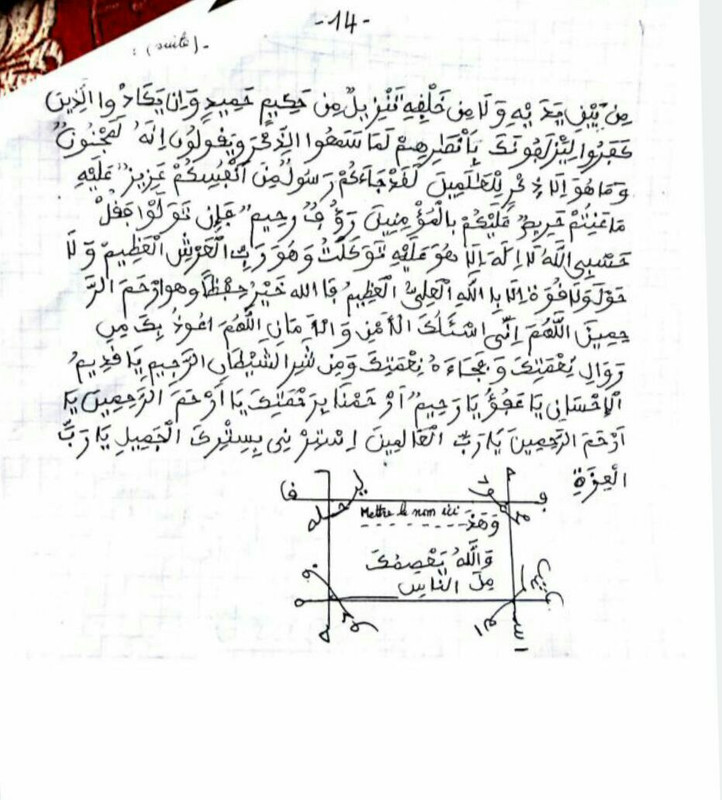 -14-
: (suite) -
مِن بَيْنِ يَدَيْهِ وَلَا مِن خَلْفِهِ تَنْزِيلٌ مِن حَكِيمٍ حَمِيدٍ وَاِن يَكَادُ وا الَّذِينَ
كَفَرُوا لَيُزْلِفُونَكَ بِأَبْصَرِهِمْ لَمَا سَمَعُوا الذِّكْرَ وَيَقُولُونَ اِنَّهُ لَمَجْنُونٌ
وَمَا هُوَ اِلَا ذِكْرٌ لِلْعَلَمِينَ لَقَدْ جَاءَكُمْ رَسُولٌ مِنَ اَنْفُسِكُمْ عَزِيزٌ عَلَيْهِ
مَا عَنِتُمْ حَرِيصٌ عَلَيْكُمْ بِالْمُؤْمِنِينَ رَؤُفٌ رَحِيمٌ فَإِن تَوَلَّوْا فَقُلْ
حَسْبِيَ اللَّهُ لَا اِلَهَ اِلَا هُوَ عَلَيْهِ تَوَكَلْتُ وَهُوَ رَبُّ الْعَرْشِ الْعَظِيمْ وَلَا
حَوْلَ وَلَا قُوَةَ اِلَا بِا اللَّهِ الْعَلِيِّ الْعَظِيمُ فَا الله خَيْرٌ حِفْظًا وهوا رْحَمَ الرَّ
حِمِينَ اللَّهُمَ اِنِّى اسْئَلُكَ الْأَمْنِ وَالْأَ مَانِ اللَّهُمَ اعُوذُ بِكَ مِن
زَوَالِ نِعْمَتِكَ وَ فَجَاءَ ةُ نِعْمَتِكَ وَمِن شَرِ الشَيْطَانِ الرَّجِيمِ يَا قَدِيمُ
الْإِحْسَانِ يَا عَفُوُّ يَا رَحِيمٌ ارْ حَمْنَا بِرَحْمَتِكَ يَا اَرْحَمَ الرَّحِمِينَ يَا
اَرْحَمَ الرَّحِمِينَ يَا رَبَّ الْعَالَمِينَ اِسْتِرْ نِى بِسِتْرِكَ الْجَمِيلِ يَا رَبَّ
الْعِزَةِ
فا
Mettre le nom ici
وَهَذَ
وَاللَّهُ يَعْصِمُكَ
مِنَ النَّاسِ